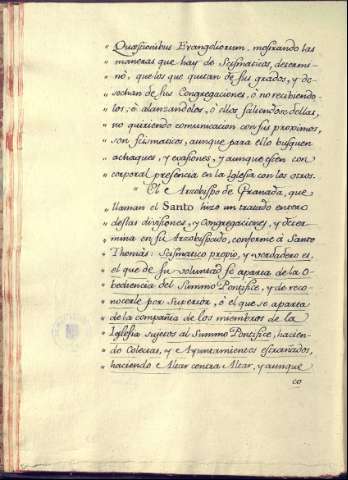 " Quæstionibus Evangeliorum, mostrando las
" maneras que hay de Scismaticos, determi-
" nó, que los que quitan de sus grados, y de-
" sechan de sus Congregaciones, ó no recibiendo-
" los; ó alanzandolos, ó ellos saliendose dellas,
" no quiriendo comunicacion con sus proximos,
" son scismaticos, aunque para ello busquen
" achaques, y evasiones, y aunque esten con
" corporal presencia en la Iglesia con los otros.
" El Arzobispo de Granada, que
" llaman el Santo hizo un tratado entero
" destas divisiones, y Congregaciones, y deter-
" mina en su Arzobispado, conforme á Santo
" Thomás: Scismatico propio, y verdadero es,
" el que de su voluntad se aparta de la O-
" bediencia del Summo Pontifice, y de reco-
" nocerle por Superior, ó el que se aparta
" de la compañia de los miembros de la
" Iglesia sujetos al Summo Pontifice, hacien-
" do Colectas, y Ayuntamientos estrañados,
" haciendo Altar contra Altar, y aunque
co